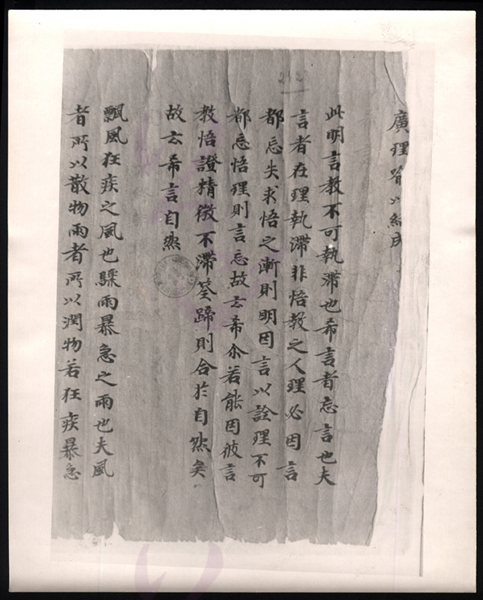 22
廣理以
此明言教不可執滯也希言者忘言也夫
言者在理執滯非悟教之人理必因言
都忘失求悟之漸則明因言以詮理不可
都忘悟理則言忘故云希尒若能因彼言
教悟證精微不滯筌蹄則合於自然矣
故云希言自然
飄風狂疾之風也驟雨暴急之雨也夫風
者所以散物雨者所以潤物若狂疾暴急